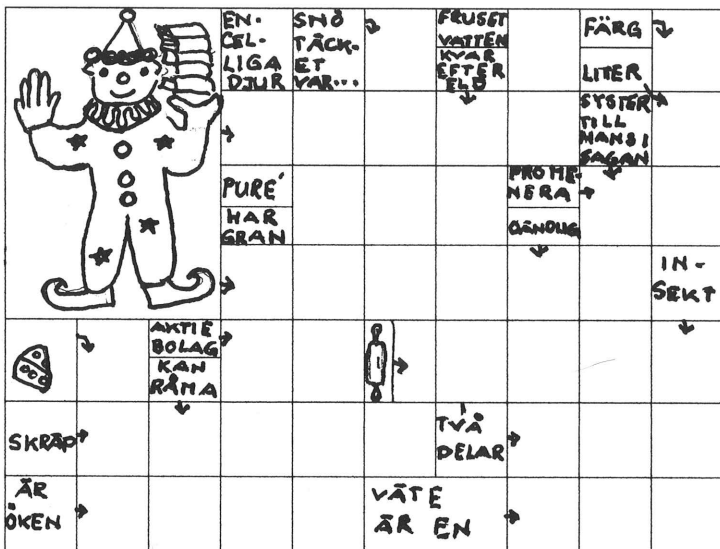 EN-
CEL-
LIGA
DJUR
SNÖ
TÄCK-
ET
VAR...
FRUSET
VATTEN
KVAR
EFTER
ELD
FÄRG
LITER
SYSTER
TILL
HANS I
SAGAN
PURÉ
HAR
GRAN
PROME-
NERA
ÄNDLIG
IN-
SEKT
AKTIE
BOLAG
KAN
RÅMA
SKRÄP
TVÅ
DELAR
ÄR
ÖKEN
VÄTE
ÄR EN